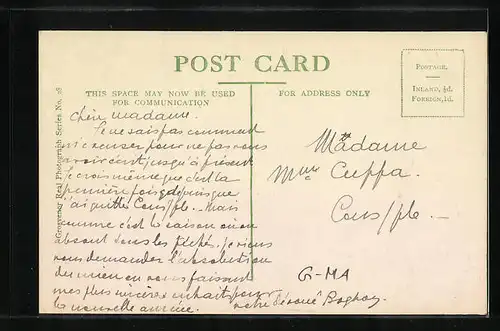 POST CARD
THIS SPACE MAY NOW BE USED
FOR COMMUNICATION
FOR ADDRESS ONLY
POSTAGE.
INLAND, ½d.
FOREIGN, 1d.
Grosvenor Real Photograph Series No. 28
Chère madame.
Je ne sais pas comment
m'excuser pour ne pas vous
avoir écrit jusqu'à présent
Je crois même que c'est la
première fois depuis que
j'ai quitté Cons/ple. - Mais
comme c'est la saison où on
absout tous les péchés, je viens
vous demander l'absolution
du mien en vous faisant
mes plus sincères souhaits pour
la nouvelle année.
votre dévoué
Madame
Mme Cuppa.
Cons/ple. -
G-MA